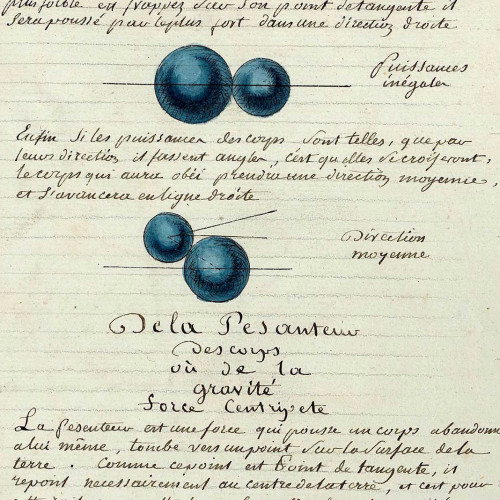 plus foible en frappez sur son point de tangente il
sera poussé par le plus fort dans une direction droite
Puissances
inégales
Enfin si les puissances des corps sont telles, que par
leurs direction il fassent angles, c'est qu'elles se croiseront,
le corps qui aura obéi prendra une direction moyenne,
et s'avancera en ligne droite
Direction
moyenne
De la Pesanteur
Des corps
où de la
gravité
force Centripete
La Pesenteur est une force qui pousse un corps abandonné
a lui même, tombe vers un point sur la surface de la
terre. Comme ce point est Point de tangente, il
repond necessairement au centre de la terre, et c'est pour